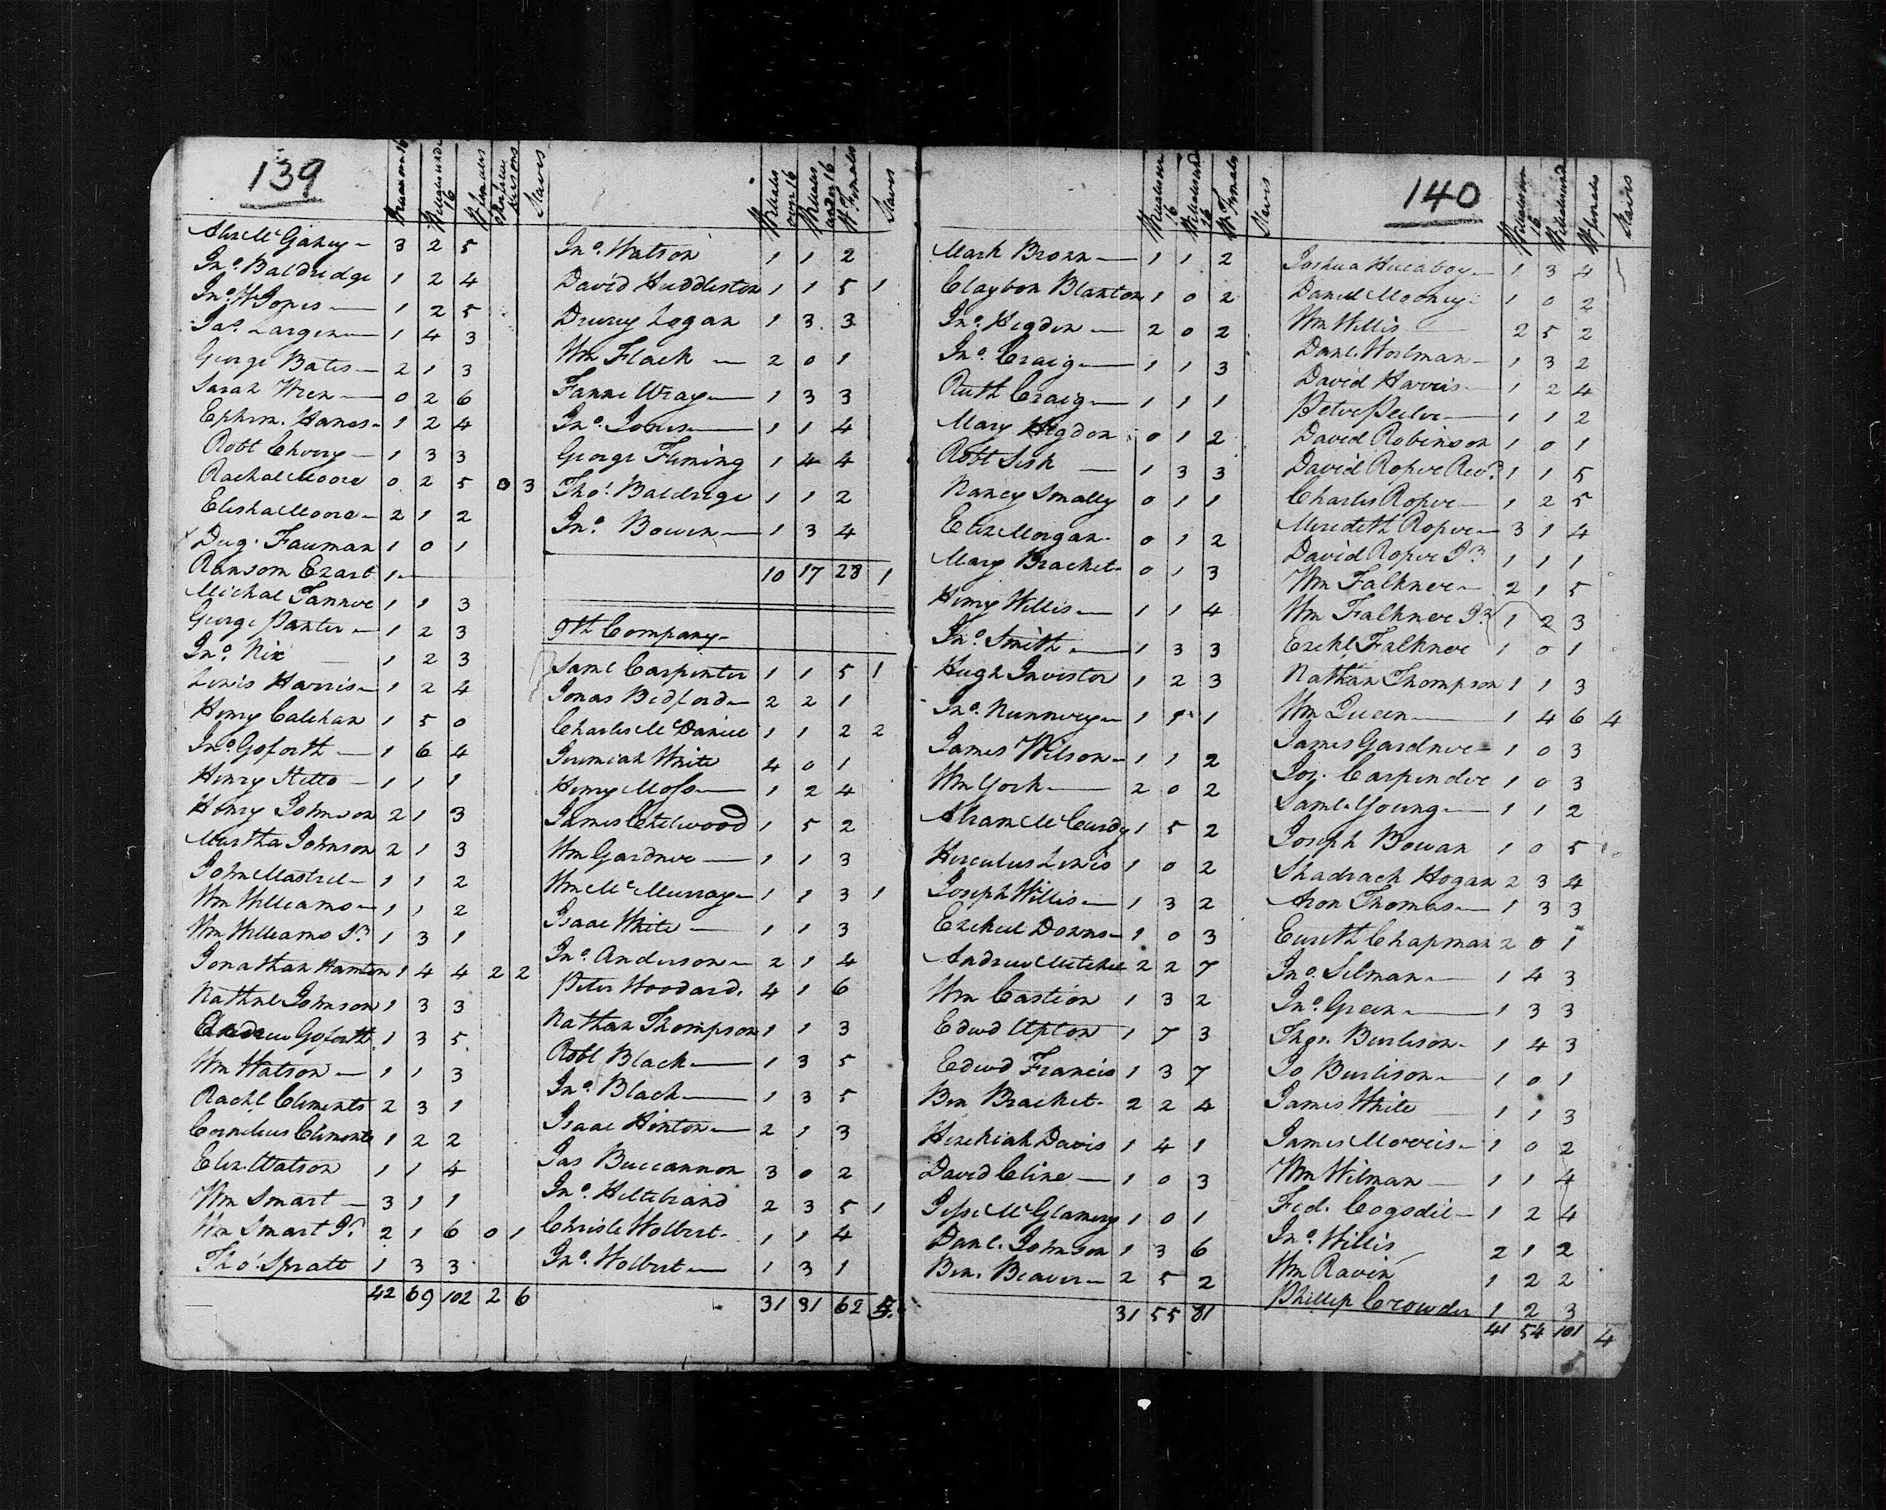 139
W Males over 16 W Males under 16 W Females other free persons Slaves
Alexr McGahey - 3 2 5
Jno. Baldridge 1 2 4
Jno. W Jones - 1 2 5
Jas. Largen - 1 4 3
George Bates - 2 1 3
Sarah Wren - 0 2 6
Ephrm. Hanes - 1 2 4
Robt Chovry - 1 3 3
Rachal Moore 0 2 5 0 3
Elisha Moore - 2 1 2
Dug. Fauman 1 0 1
Ransom Ezart 1 -
Michal Tanner 1 1 3
George Panter - 1 2 3
Jno. Nix 1 2 3
Lewis Harris - 1 2 4
Henry Calehan 1 5 0
Jno. Goforth - 1 6 4
Henry Stetto - 1 1 1
Henry Johnson 2 1 3
Martha Johnson 2 1 3
John Mastrel - 1 1 2
Wm Williams - 1 1 2
Wm Williams Jr. 1 3 1
Jonathan Hamton 1 4 4 2 2
Nathnl Johnson 1 3 3
Andrew Goforth 1 3 5
Wm Watson - 1 1 3
Rachl Clements 2 3 1
Cornelius Clements 1 2 2
Eliz. Watson 1 1 4
Wm Smart - 3 1 1
Wm Smart Jr. 2 1 6 0 1
Tho. Spratt 1 3 3
42 69 102 2 6
W Males over 16 W Males under 16 W Females Slaves
Jno. Watson 1 1 2
David Huddleston 1 1 5 1
Drurey Logan 1 3 3
Wm Flack - 2 0 1
Fanne Wray - 1 3 3
Jno. Jones - 1 1 4
George Fleming 1 4 4
Tho. Baldrige 1 1 2
Jno. Bowen - 1 3 4
10 17 28 1
9th Company -
Saml Carpenter 1 1 5 1
Jonas Bedford - 2 2 1
Charles McDaniel 1 1 2 2
Jeremiah White 4 0 1
Henry Moss - 1 2 4
James Chelwood 1 5 2
Wm Gardner - 1 1 3
Wm McMurray - 1 1 3 1
Isaac White - 1 1 3
Jno. Anderson - 2 1 4
Peter Woodard. 4 1 6
Nathan Thompson 1 1 3
Robt Black - 1 3 5
Jno. Black - 1 3 5
Isaac Hinton - 2 1 3
Jas Buccannon 3 0 2
Jno. Hiltebrand 2 3 5 1
Christe Wolbert - 1 1 4
Jno. Wolbert - 1 3 1
31 31 62 5
W Males over 16 W Males under 16 W Females Slaves
Mark Brown - 1 1 2
Claybon Blanton 1 0 2
Jno. Higdon - 2 0 2
Jno. Craig - 1 1 3
Ruth Craig - 1 1 1
Mary Higdon 0 1 2
Robt Sisk - 1 3 3
Nancy Smally 0 1 1
Eliz Morgan - 0 1 2
Mary Bracket - 0 1 3
Henry Willis - 1 1 4
Jno. Smith - 1 3 3
Hugh Invistor 1 2 3
Jno. Nunnery - 1 1 1
James Wilson - 1 1 2
Wm York - 2 0 2
Abram McCurdy 1 5 2
Herculus Lewis 1 0 2
Joseph Willis - 1 3 2
Ezekiel Downs - 1 0 3
Andrew Mitchel 2 2 7
Wm Castion 1 3 2
Edwd Upton 1 7 3
Edwd Francis 1 3 7
Ben Bracket - 2 2 4
Hezekiah Davis 1 4 1
David Cline - 1 0 3
Jesse McGlamery 1 0 1
Danl. Johnson 1 3 6
Ben. Beaver - 2 5 2
31 55 81
140
W Males over 16 W Males under W Females Slaves
Joshua Hucaboy - 1 3 4
Daniel Mooney - 1 0 2
Wm Willis 2 5 2
Danl. Wortman - 1 3 2
David Harris - 1 2 4
Peter Peeler - 1 1 2
David Robinson 1 0 1
David Roper Revd. 1 1 5
Charles Roper - 1 2 5
Meredith Roper - 3 1 4
David Roper Jr. 1 1 1
Wm Falkner - 2 1 5
Wm Falkner Jr. 1 2 3
Ezekl Falkner 1 0 1
Nathan Thompson 1 1 3
Wm Queen - 1 4 6 4
James Gardner - 1 0 3
Jos. Carpinder 1 0 3
Saml. Young - 1 1 2
Joseph Bowan 1 0 5
Shadrach Hogan 2 3 4
Aron Thomas - 1 3 3
Eurith Chapman 2 0 1
Jno. Silman - 1 4 3
Jno. Green - 1 3 3
Thos. Burlison - 1 4 3
Jo Burlison - 1 0 1
James White 1 1 3
James Morris - 1 0 2
Wm Wilman - 1 1 4
Fed. Cogsdil - 1 2 4
Jno. Willis 2 1 2
Wm Ravin 1 2 2
Phillip Crowder 1 2 3
41 54 101 4